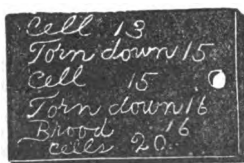 Cell 13
Torn down 15
Cell 15
Torn down 16
Brood 16
cells 20